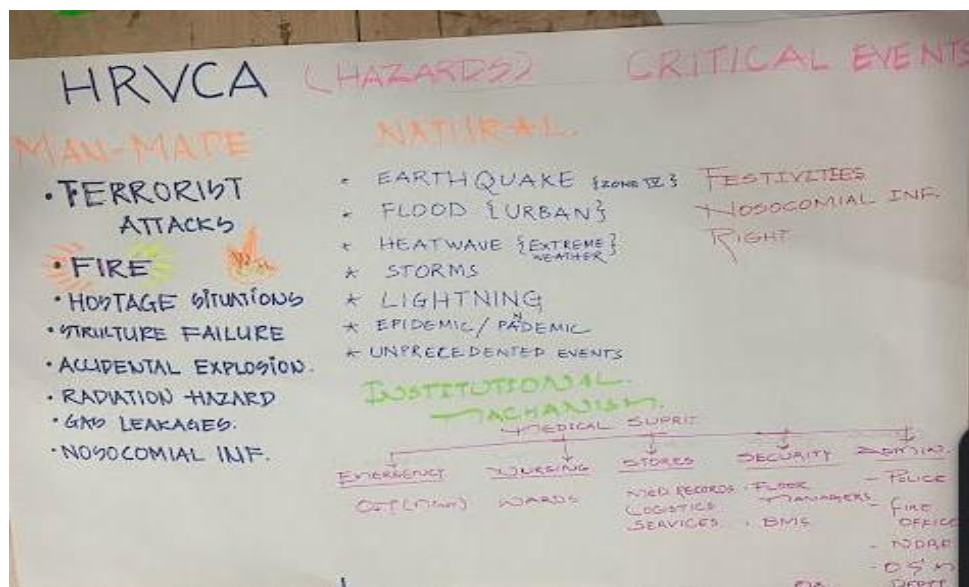 HRVCA (HAZARDS) CRITICAL EVENTS
MAN-MADE
• TERRORIST
ATTACKS
• FIRE
• HOSTAGE SITUATIONS
• STRUCTURE FAILURE
• ACCIDENTAL EXPLOSION.
• RADIATION HAZARD
• GAS LEAKAGES.
• NOSOCOMIAL INF.
NATURAL.
• EARTHQUAKE {ZONE IV}
• FLOOD {URBAN}
* HEATWAVE {EXTREME
WEATHER}
* STORMS
* LIGHTNING
* EPIDEMIC / PANDEMIC
* UNPRECEDENTED EVENTS
FESTIVITIES
NOSOCOMIAL INF.
RIGHT
INSTITUTIONAL
MACHANISM.
MEDICAL SUPRIT
EMERGENCY
NURSING
WARDS
STORES
MED RECORDS
LOGISTICS
SERVICES
SECURITY
• FLOOR
MANAGERS
• BMS
ADMIN.
- POLICE
- FIRE
OFFICE
- NDRF